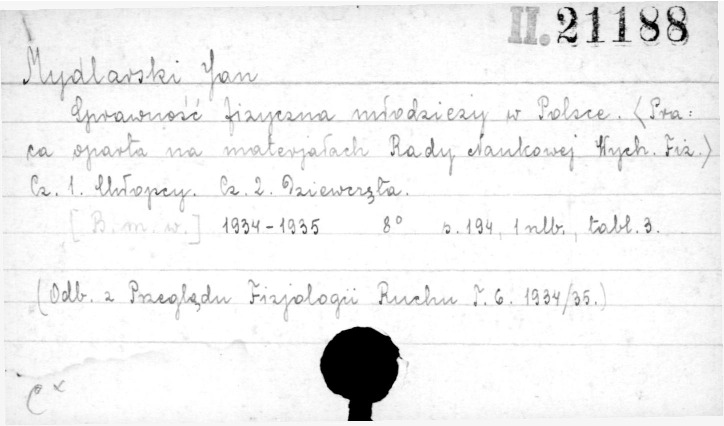 II. 21188
Mydlarski Jan
Sprawność fizyczna młodzieży w Polsce. (Pra=
ca oparta na materjałach Rady Naukowej Wych. Fiz.)
Cz. 1. Chłopcy. Cz. 2. Dziewczęta.
[B. m. w.] 1934-1935 8° s. 194, 1 nlb., tabl. 3.
(Odb. z Przeglądu Fizjologii Ruchu T. 6. 1934/35.)
C x